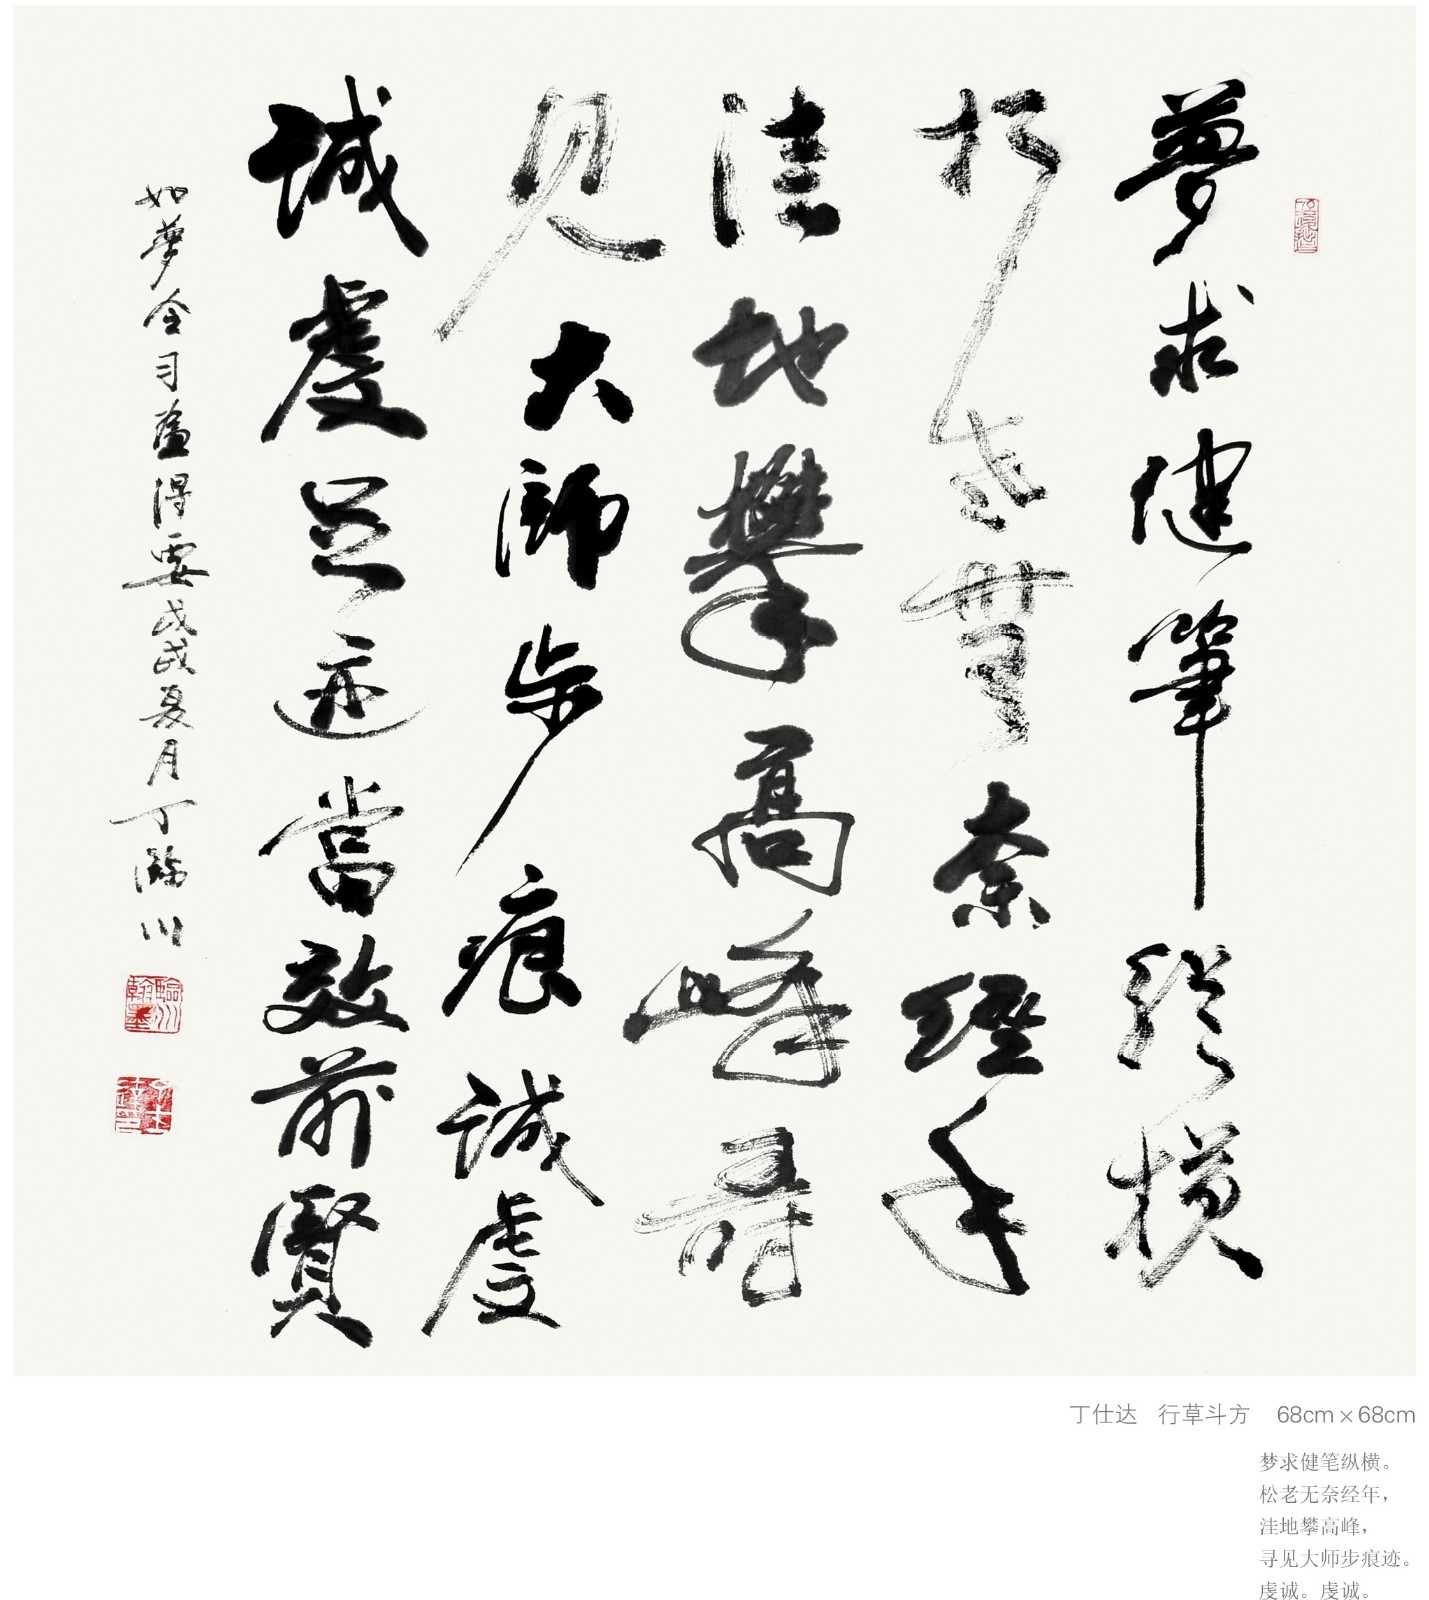 夢求健筆縱橫
松老無奈經年
洼地攀高峰尋
见大師步痕誠虔
誠虔足迹當效前賢
如夢令习得要戊戌夏月丁臨川
臨川翰墨
丁仕达 行草斗方 68cm×68cm
梦求健笔纵横。
松老无奈经年，
洼地攀高峰，
寻见大师步痕迹。
虔诚。虔诚。